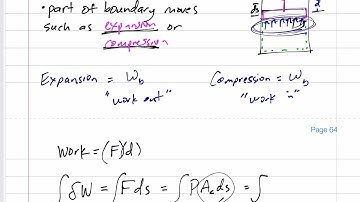 • part of boundary moves
such as expansion or
compression
Expansion = Wb
"work out"
Compression = Wb
"work in"
Page 64
Work = (F)(d)
∫δW = ∫F ds = ∫P Ac ds = ∫